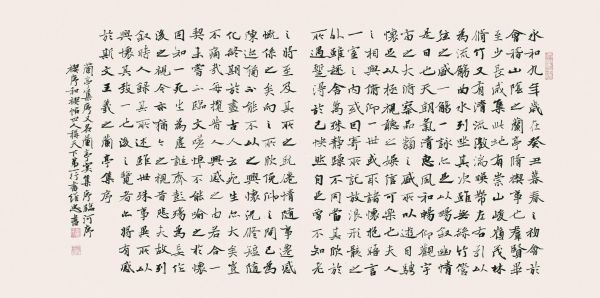 永和九年歲在癸丑暮春之初會於
會稽山陰之蘭亭脩稧事也群賢畢
至少長咸集此地有崇山峻嶺茂林
脩竹又有清流激湍映帶左右引以
為流觴曲水列坐其次雖無絲竹管
弦之盛一觴一詠亦足以暢敘幽情
是日也天朗氣清惠風和暢仰觀宇
宙之大俯察品類之盛所以遊目騁
懷足以極視聽之娛信可樂也夫人
之相與俯仰一世或取諸懷抱晤言
一室之內或因寄所託放浪形骸之
外雖趣舍萬殊靜躁不同當其欣於
所遇蹔得於己怏然自足曾不知老
之將至及其所之既倦情隨事遷感
慨係之矣向之所欣俛仰之間已為
陳迹猶不能不以之興懷況脩短隨
化終期於盡古人云死生亦大矣豈
不痛哉每攬昔人興感之由若合一
契未嘗不臨文嗟悼不能喻之於懷
固知一死生為虛誕齊彭殤為妄作
後之視今亦猶今之視昔悲夫故列
敘時人錄其所述雖世殊事異所以
興懷其致一也後之覽者亦將有感
於斯文王羲之蘭亭集序
蘭亭集序又名蘭亭宴集序臨河序
禊序和禊帖世人稱天下第一行書